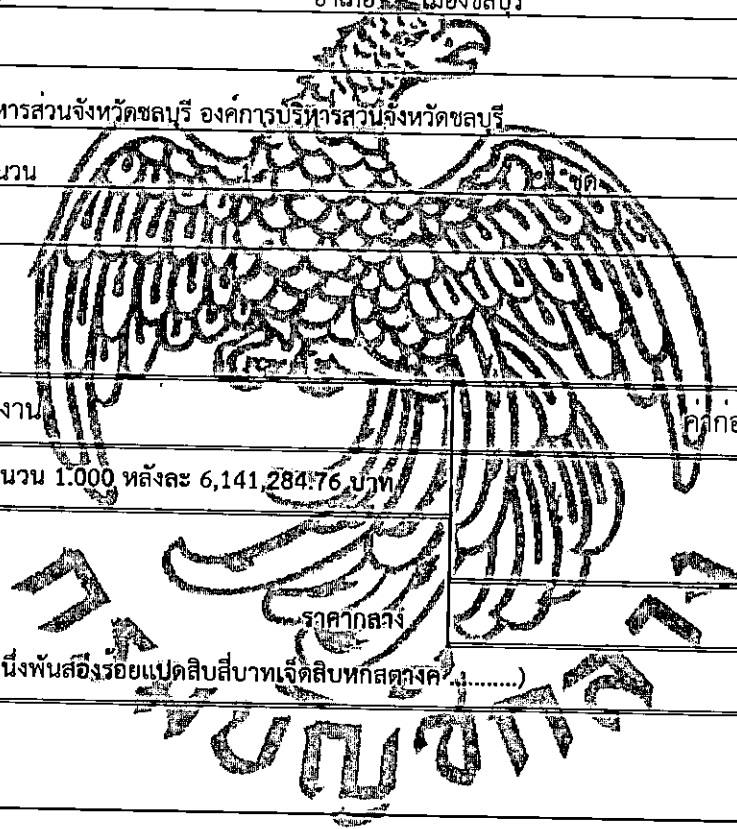 เมืองชลบุรี
หารส่วนจังหวัดชลบุรี องค์การบริหารส่วนจังหวัดชลบุรี
นวน 1 ชุด
งาน ค่าก่อ
นวน 1.000 หลังละ 6,141,284.76 บาท
ราคากลาง
นึ่งพันสองร้อยแปดสิบสี่บาทเจ็ดสิบหกสตางค์ ..........)